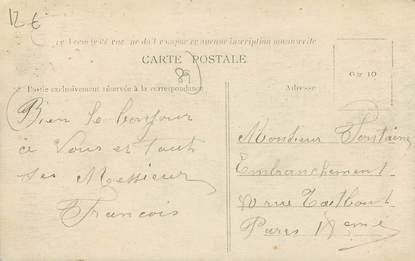 12 €
Ce côté est
inscription manuscrite
CARTE POSTALE
89
Partie exclusivement réservée à la correspondance
Adresse
Bien le bonjour
a Vous et tout
ses Messieur
Francois
Monsieur Fontaine
Embranchement
rue Taitbout
Paris